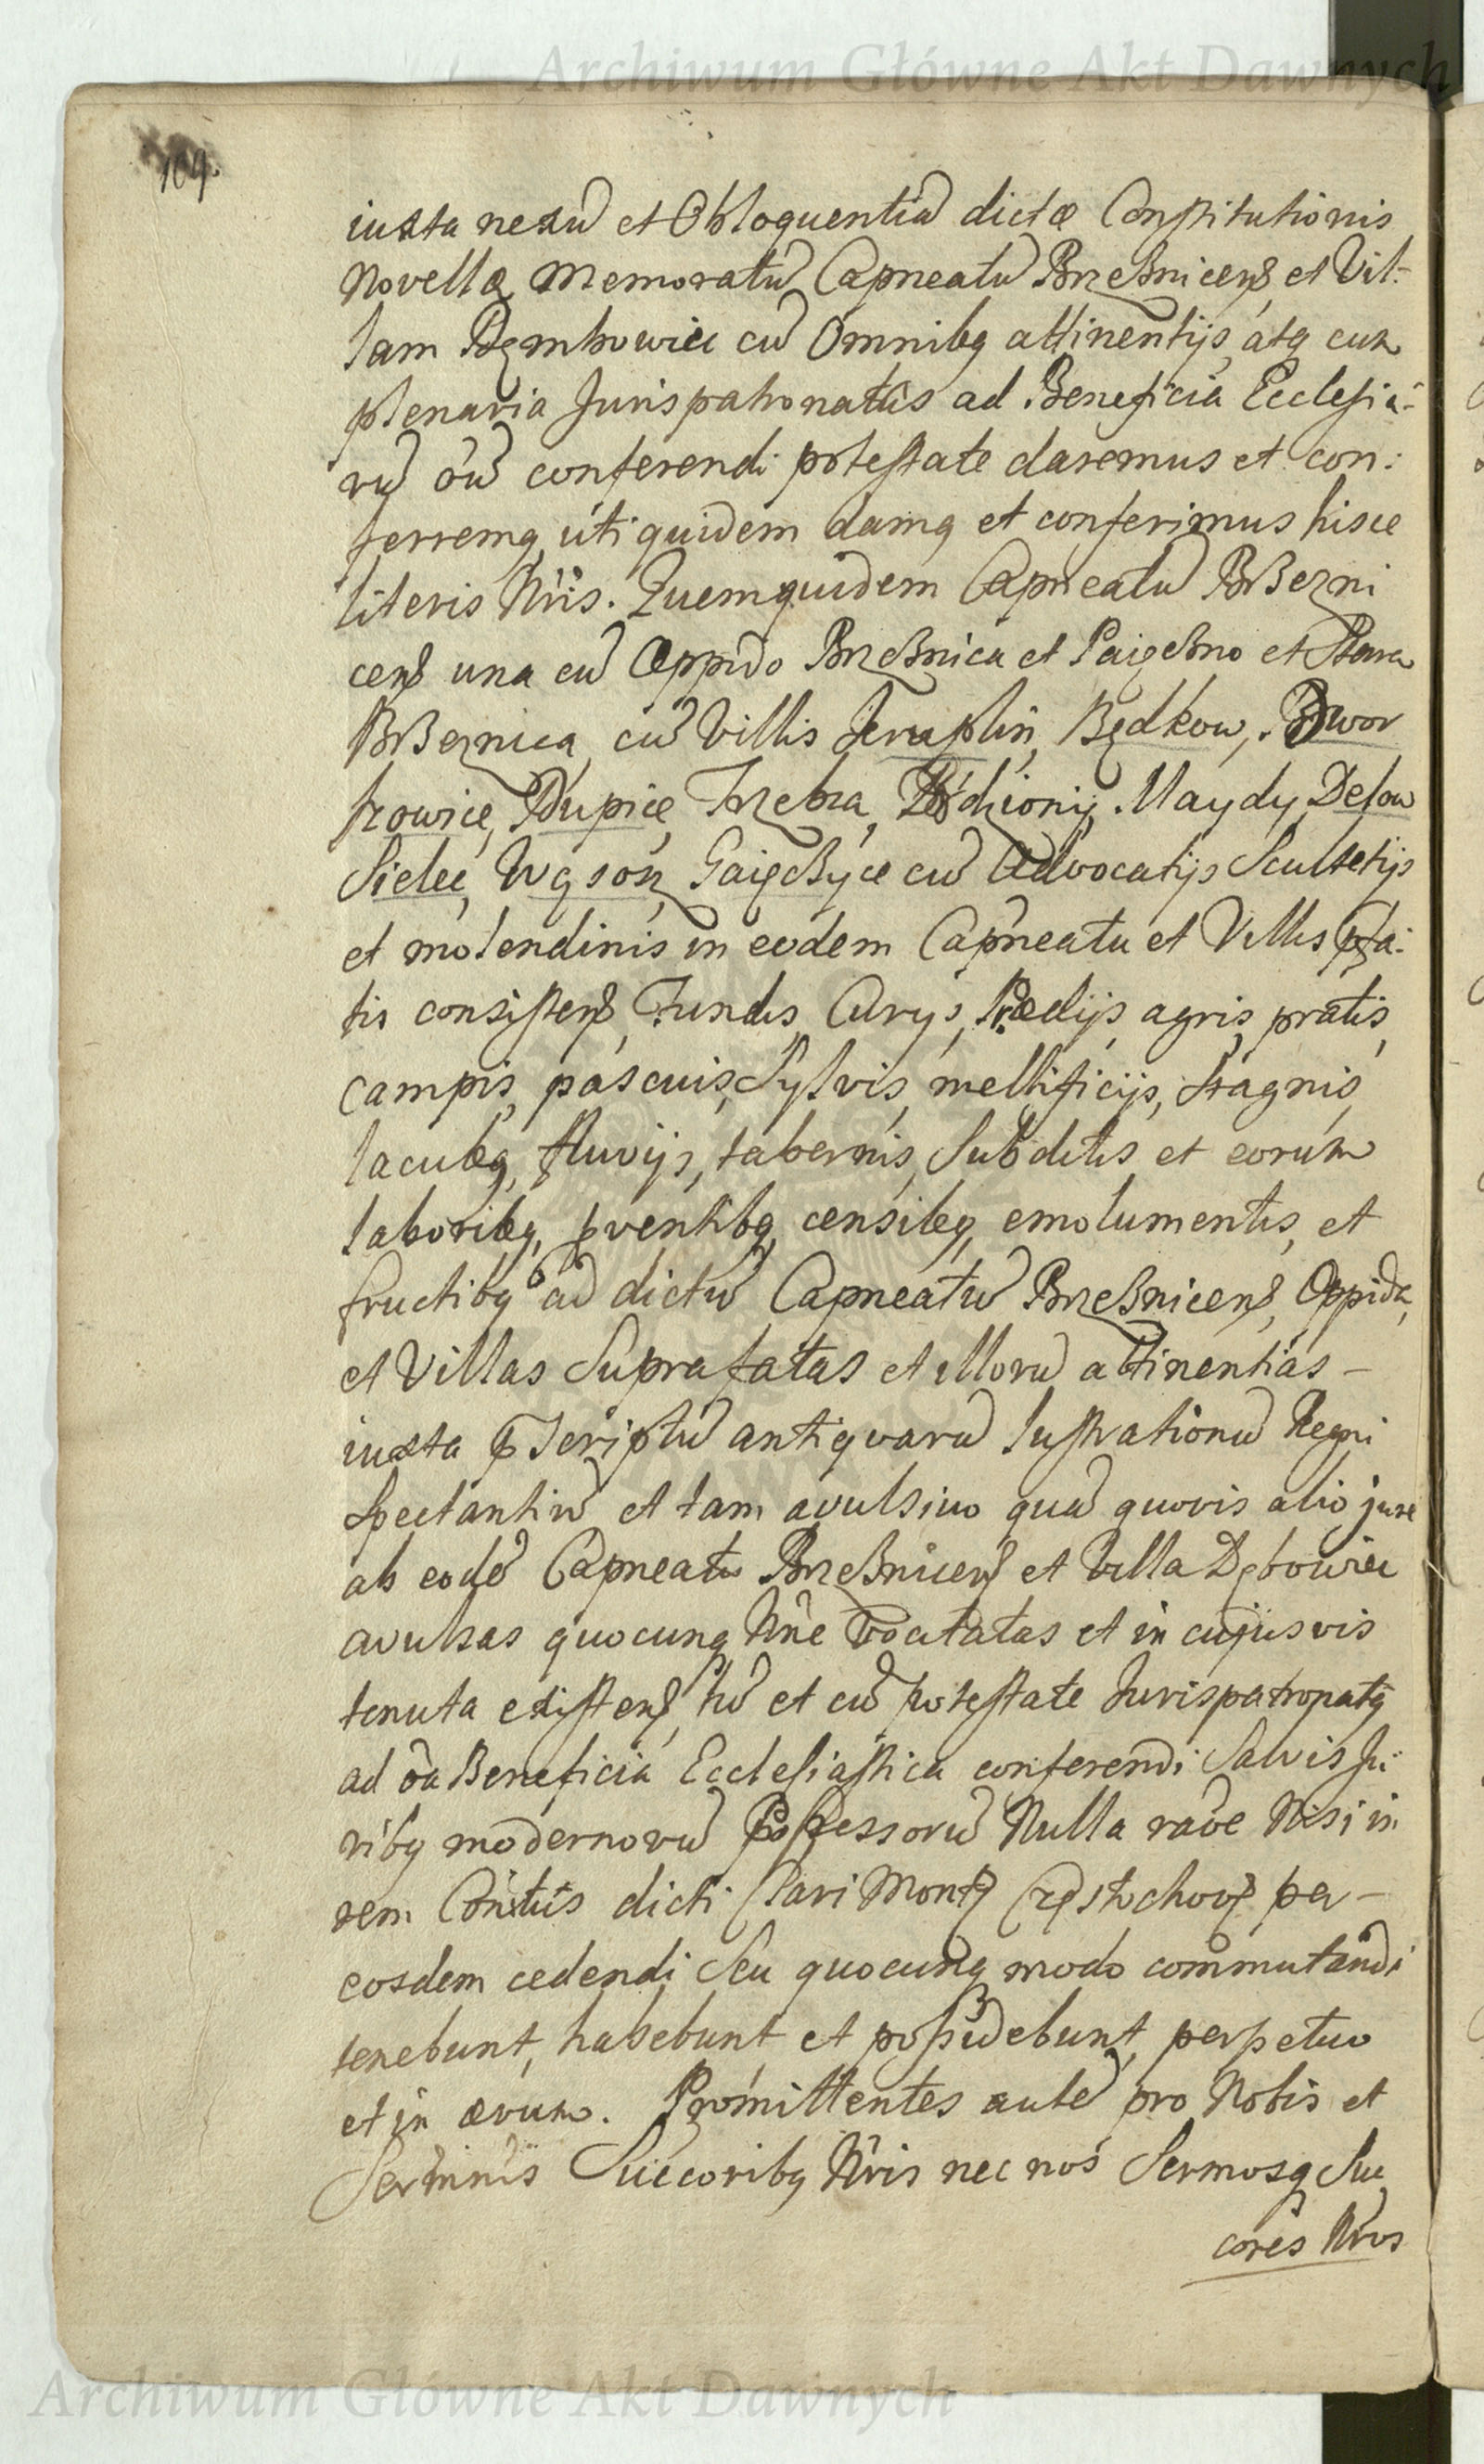 Archiwum Główne Akt Dawnych
109.
iuxta nexũ et Obloquentiã dictæ Constitutionis
Novellæ Memoratũ Capneatũ Brzeßnicens et Vil-
lam Dęmbowiec cũ Omnibq attinentijs, atq cum
plenaria Jurispatronatûs ad Beneficia Ecclesia-
rũ oũ conferendi potestate daremus et con:
ferremq, uti quidem damq et conferimus hisce
literis Nris. Quemquidem Capneatũ Brßezni
cens una cũ Oppido Brzeßnica et Paięßno et Stara
Brßeznica, cũ Villis Jeraplin, Będkow, Dwor
szowice, Dupice, Trzebca, Maydy,
Sielec, Wąsosz, Gaięßyce cũ Advocatijs Scultetijs
et molendinis in eodem Capneatu et Villis pfa:
tis consistens, Fundis, Curys, Prædijs, agris, pratis,
campis, pascuis, Sylvis, mellificijs, stagnis,
lacubq, fluvijs, tabernis, Subditis et eorum
laboribq, pventibq, censibq, emolumentis, et
fructibq ad dictũ Capneatũ Brzeßnicens, Oppida,
et Villas Suprafatas et illorũ attinentias –
iuxta pscriptũ antiquarũ lustrationũ Regni
spectantiũ et tam avulsivo quã quovis alio jure
ab eodẽ Capneatu Brzeßnicens et Villa Dębowiec
avulsas quocunq Nne vocitatas et in cujusvis
tenuta existens, tũ et cũ potestate Jurispatronatq
ad oa Beneficia Ecclesiastica conferendi Salvis Ju-
ribq modernorũ Possessorũ Nulla raõe Nisi in
rem Contus dicti Clari Montis Częstochov per –
eosdem cedendi Seu quocunq modo commutandi
tenebunt, habebunt et possidebunt, perpetuo
et in ævum. Promittentes autẽ pro Nobis et
Serminis Succoribq Nris nec nõ Sermosq Suc
cores Nros
Archiwum Główne Akt Dawnych